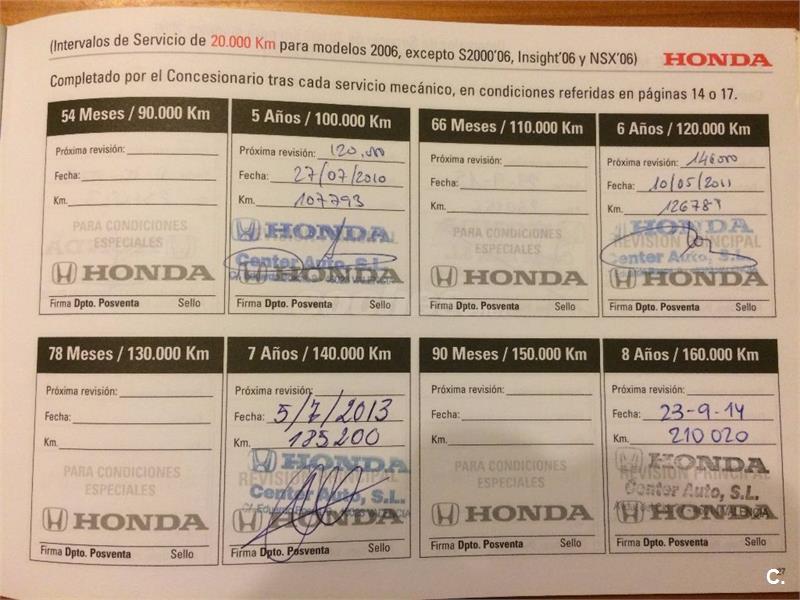 (Intervalos de Servicio de 20.000 Km para modelos 2006, excepto S2000'06, Insight'06 y NSX'06)
HONDA
Completado por el Concesionario tras cada servicio mecánico, en condiciones referidas en páginas 14 o 17.
54 Meses / 90.000 Km
Próxima revisión:
Fecha:
Km.
PARA CONDICIONES
ESPECIALES
HONDA
Firma Dpto. Posventa Sello
5 Años / 100.000 Km
Próxima revisión: 120.000
Fecha: 27/07/2010
Km. 107793
HONDA
Center Auto, S.L.
HONDA
VALENCIA
Firma Dpto. Posventa Sello
66 Meses / 110.000 Km
Próxima revisión:
Fecha:
Km.
PARA CONDICIONES
ESPECIALES
HONDA
Firma Dpto. Posventa Sello
6 Años / 120.000 Km
Próxima revisión: 146000
Fecha: 10/05/2011
Km. 126789
HONDA
REVISIÓN PRINCIPAL
Center Auto, S.L.
HONDA
Firma Dpto. Posventa Sello
78 Meses / 130.000 Km
Próxima revisión:
Fecha:
Km.
PARA CONDICIONES
ESPECIALES
HONDA
Firma Dpto. Posventa Sello
7 Años / 140.000 Km
Próxima revisión:
Fecha: 5/7/2013
Km. 185200
HONDA
REVISIÓN PRINCIPAL
Center Auto, S.L.
HONDA
VALENCIA
Firma Dpto. Posventa Sello
90 Meses / 150.000 Km
Próxima revisión:
Fecha:
Km.
PARA CONDICIONES
ESPECIALES
HONDA
Firma Dpto. Posventa Sello
8 Años / 160.000 Km
Próxima revisión:
Fecha: 23-9-14
Km. 210020
HONDA
REVISIÓN PRINCIPAL
Center Auto, S.L.
HONDA
VALENCIA
Firma Dpto. Posventa Sello
27
C.